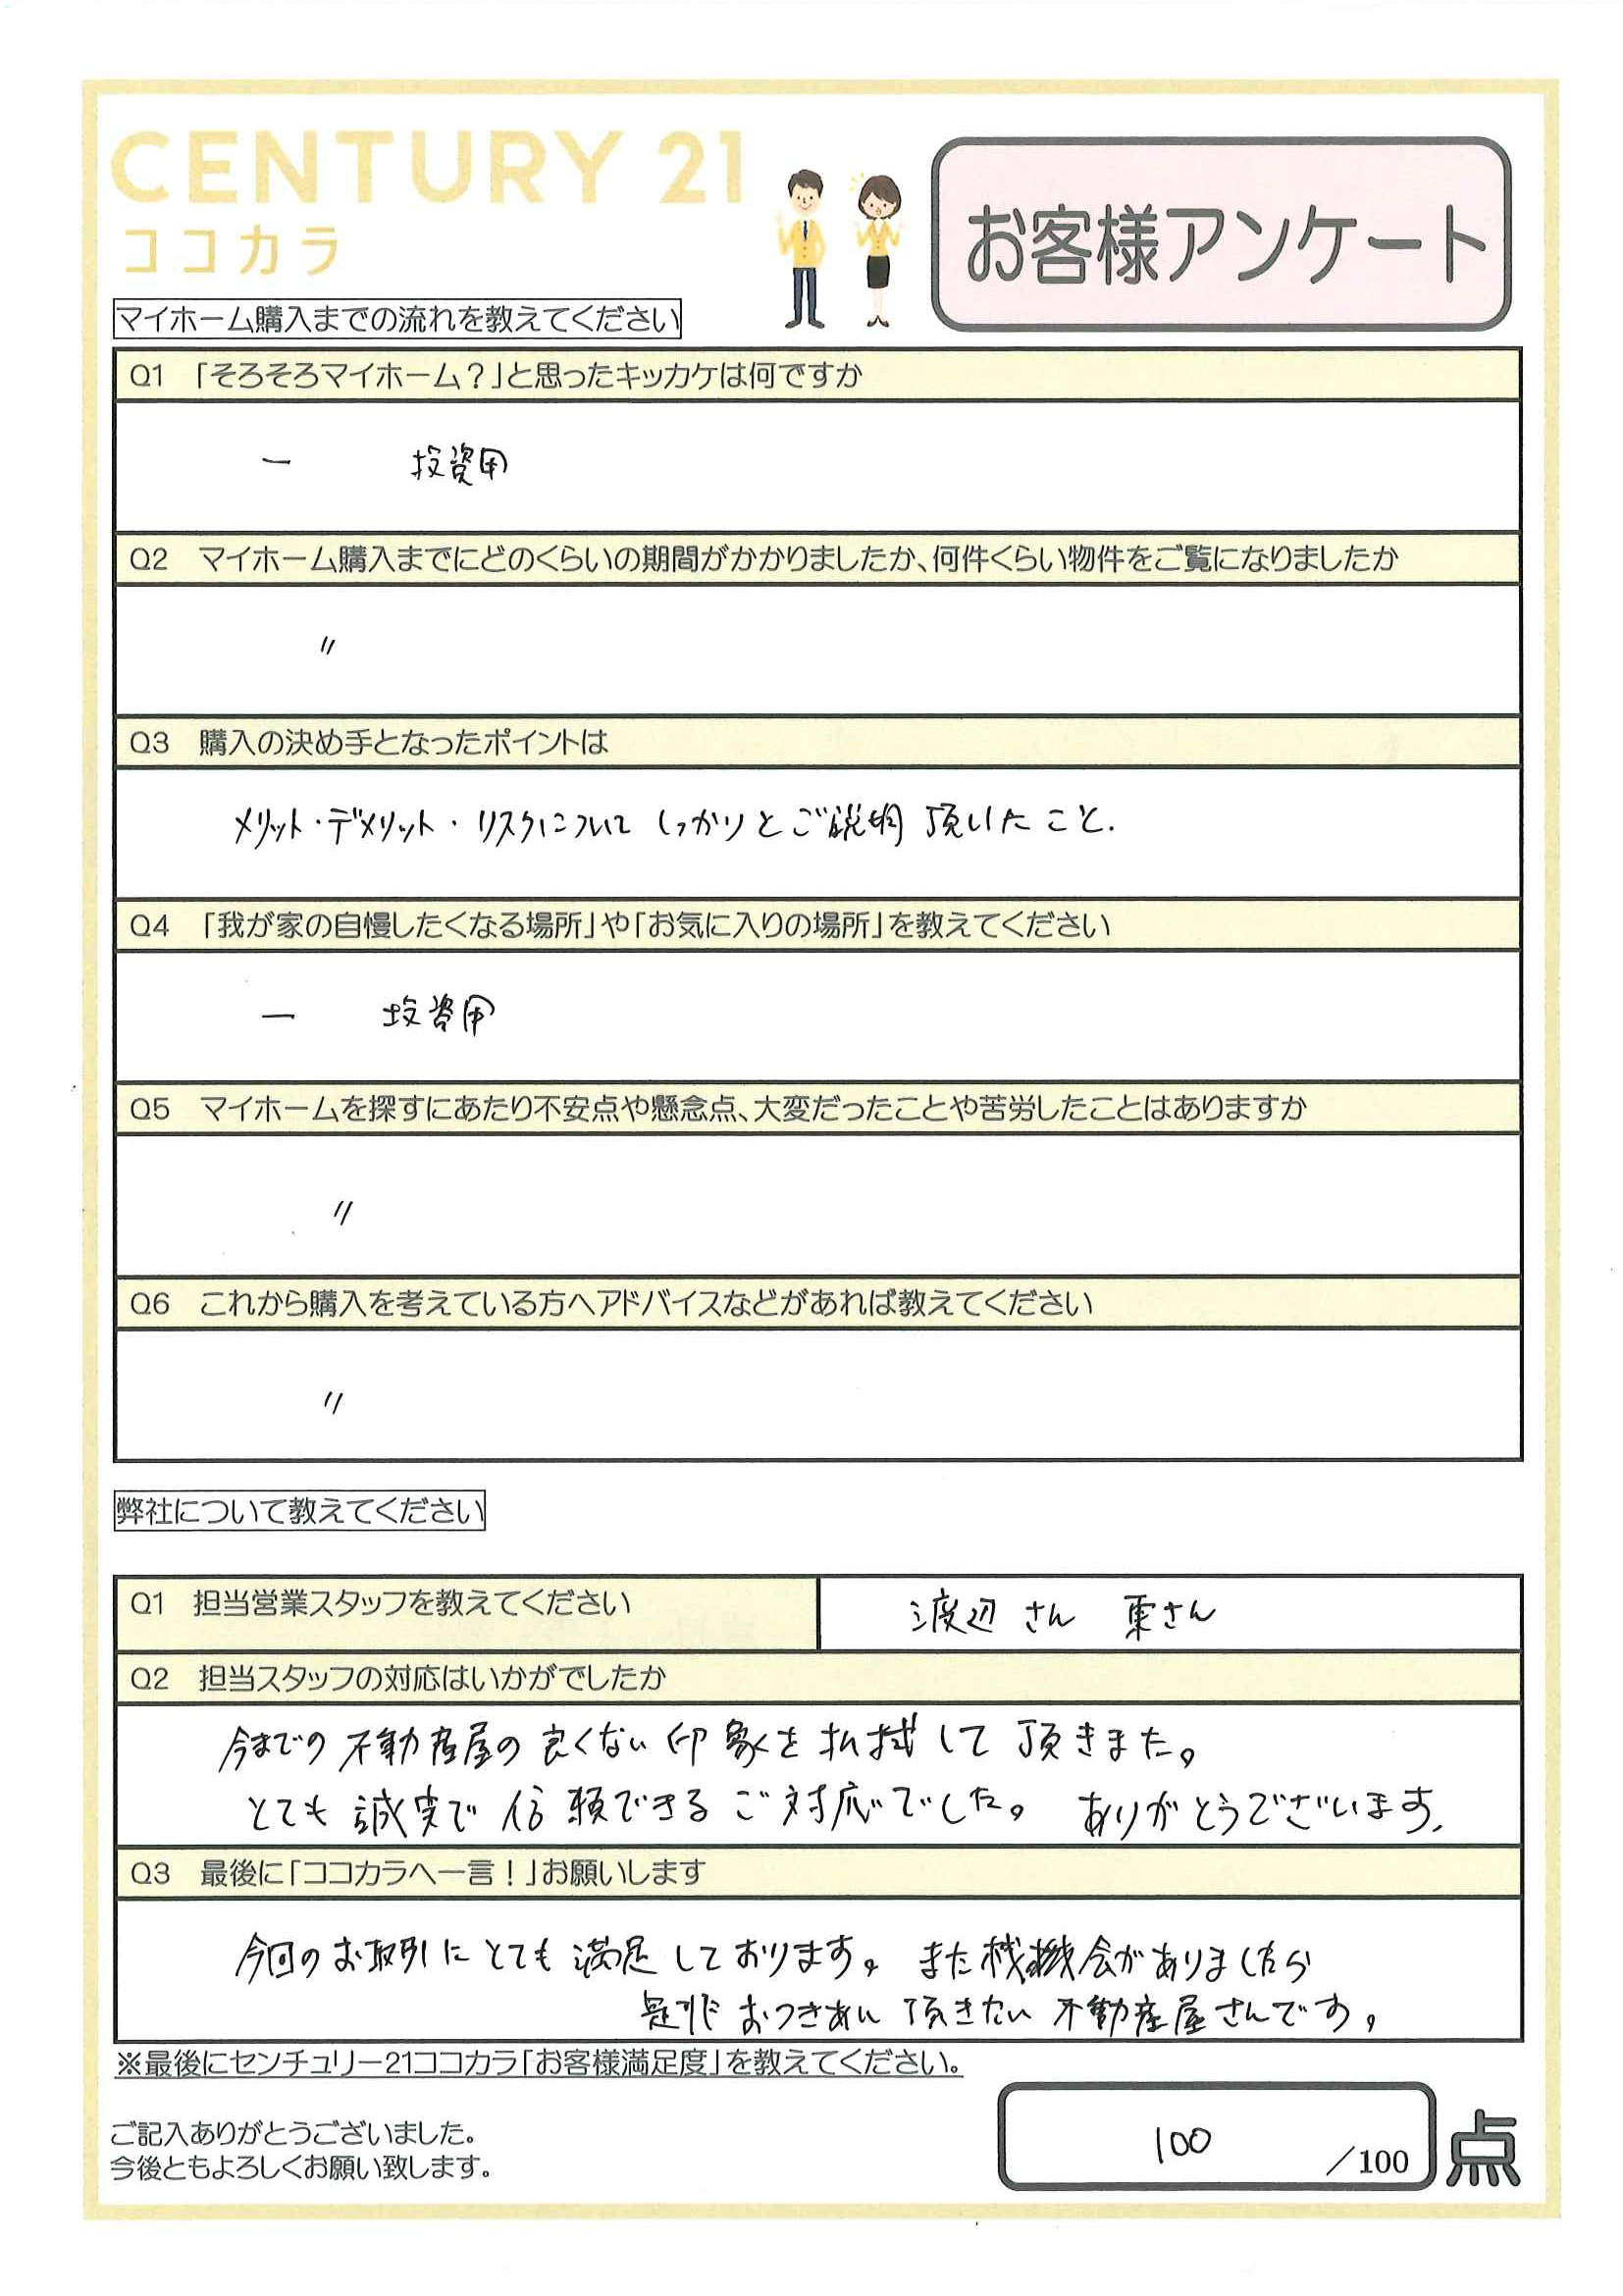 CENTURY 21
ココカラ
お客様アンケート
マイホーム購入までの流れを教えてください
Q1 「そろそろマイホーム？」と思ったキッカケは何ですか
ー 投資用
Q2 マイホーム購入までにどのくらいの期間がかかりましたか、何件くらい物件をご覧になりましたか
〃
Q3 購入の決め手となったポイントは
メリット・デメリット・リスクについてしっかりとご説明頂いたこと.
Q4 「我が家の自慢したくなる場所」や「お気に入りの場所」を教えてください
ー 投資用
Q5 マイホームを探すにあたり不安点や懸念点、大変だったことや苦労したことはありますか
〃
Q6 これから購入を考えている方へアドバイスなどがあれば教えてください
〃
弊社について教えてください
Q1 担当営業スタッフを教えてください
渡辺さん 東さん
Q2 担当スタッフの対応はいかがでしたか
今までの不動産屋の良くない印象を払拭して頂きまた。
とても誠実で信頼できるご対応でした。 ありがとうございます.
Q3 最後に「ココカラへ一言！」お願いします
今回のお取引にとても満足しております。また機会がありましたら
是非おつきあい頂きたい不動産屋さんです。
※最後にセンチュリー21ココカラ「お客様満足度」を教えてください。
ご記入ありがとうございました。
今後ともよろしくお願い致します。
100 ／100 点